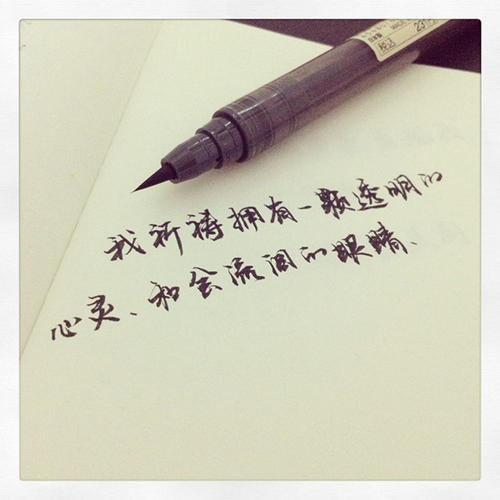 我祈祷拥有一颗透明的
心灵、和会流泪的眼睛、